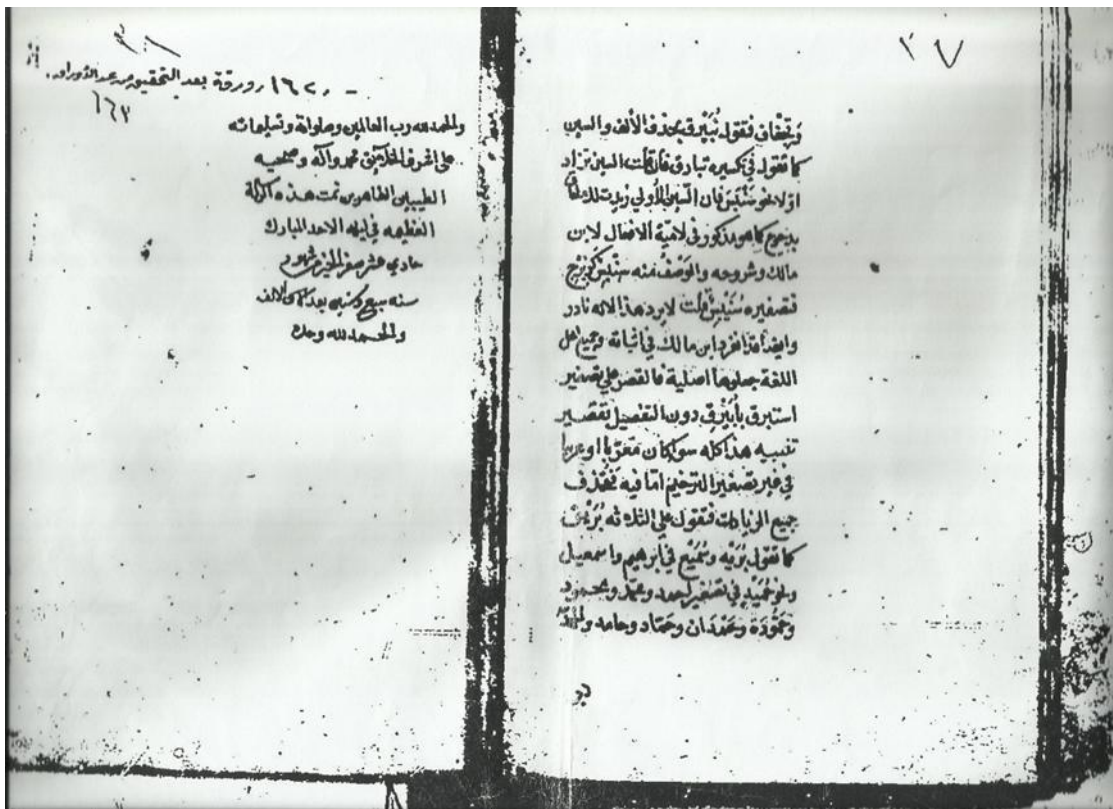 ٢٧
وتخفان فنقول تُبَيْرق بحذف الألف والسين
كما تقول في تكسيره تبارق فان قلت السين تزاد
اولا نحو سَنْبَسَ فان السين الأولى زيدت
بدحرج كما هو مذكور في لامية الافعال لابن
مالك وشروحه والوَصْفُ منه سنبس كزبرج
فتصغيره سُنَيْبِسٌ قلت لا يرد هذا لانه نادر
وايضا قد انفرد ابن مالك في اثباته وجميع اهل
اللغة جعلوها اصلية فالقصر على تصغير
استبرق بأُبَيْرِق دون التفصيل تقصير
تنبيه هذا كله سوا كان معَرّبا او عربيا
في غير تصغير الترخيم امّا فيه فتحذف
جميع الزيادات فنقول على الثلاثه بُرَيْق
كما تقول بُرَيْه وسُمَيْع في ابرهيم واسمعيل
ونحو حُمَيْد في تصغير احمد ومحمّد ومحمود
وحَمُّودَة وحَمْدَان وحمّاد وحامد
٢٦
- ١٦٢ ورقة بعد التحقيق من عد الأوراق.
١٦٣
والحمد لله رب العالمين وصلواته وتسليماته
على اشرف محمد وآله وصحبه
الطيبين الطاهرين تمت هذه الرسالة
العظيمه في ليلة الاحد المبارك
حادي عشر صفر الخير من شهور
سنه سبع بعد والالف
والحمد لله وحده